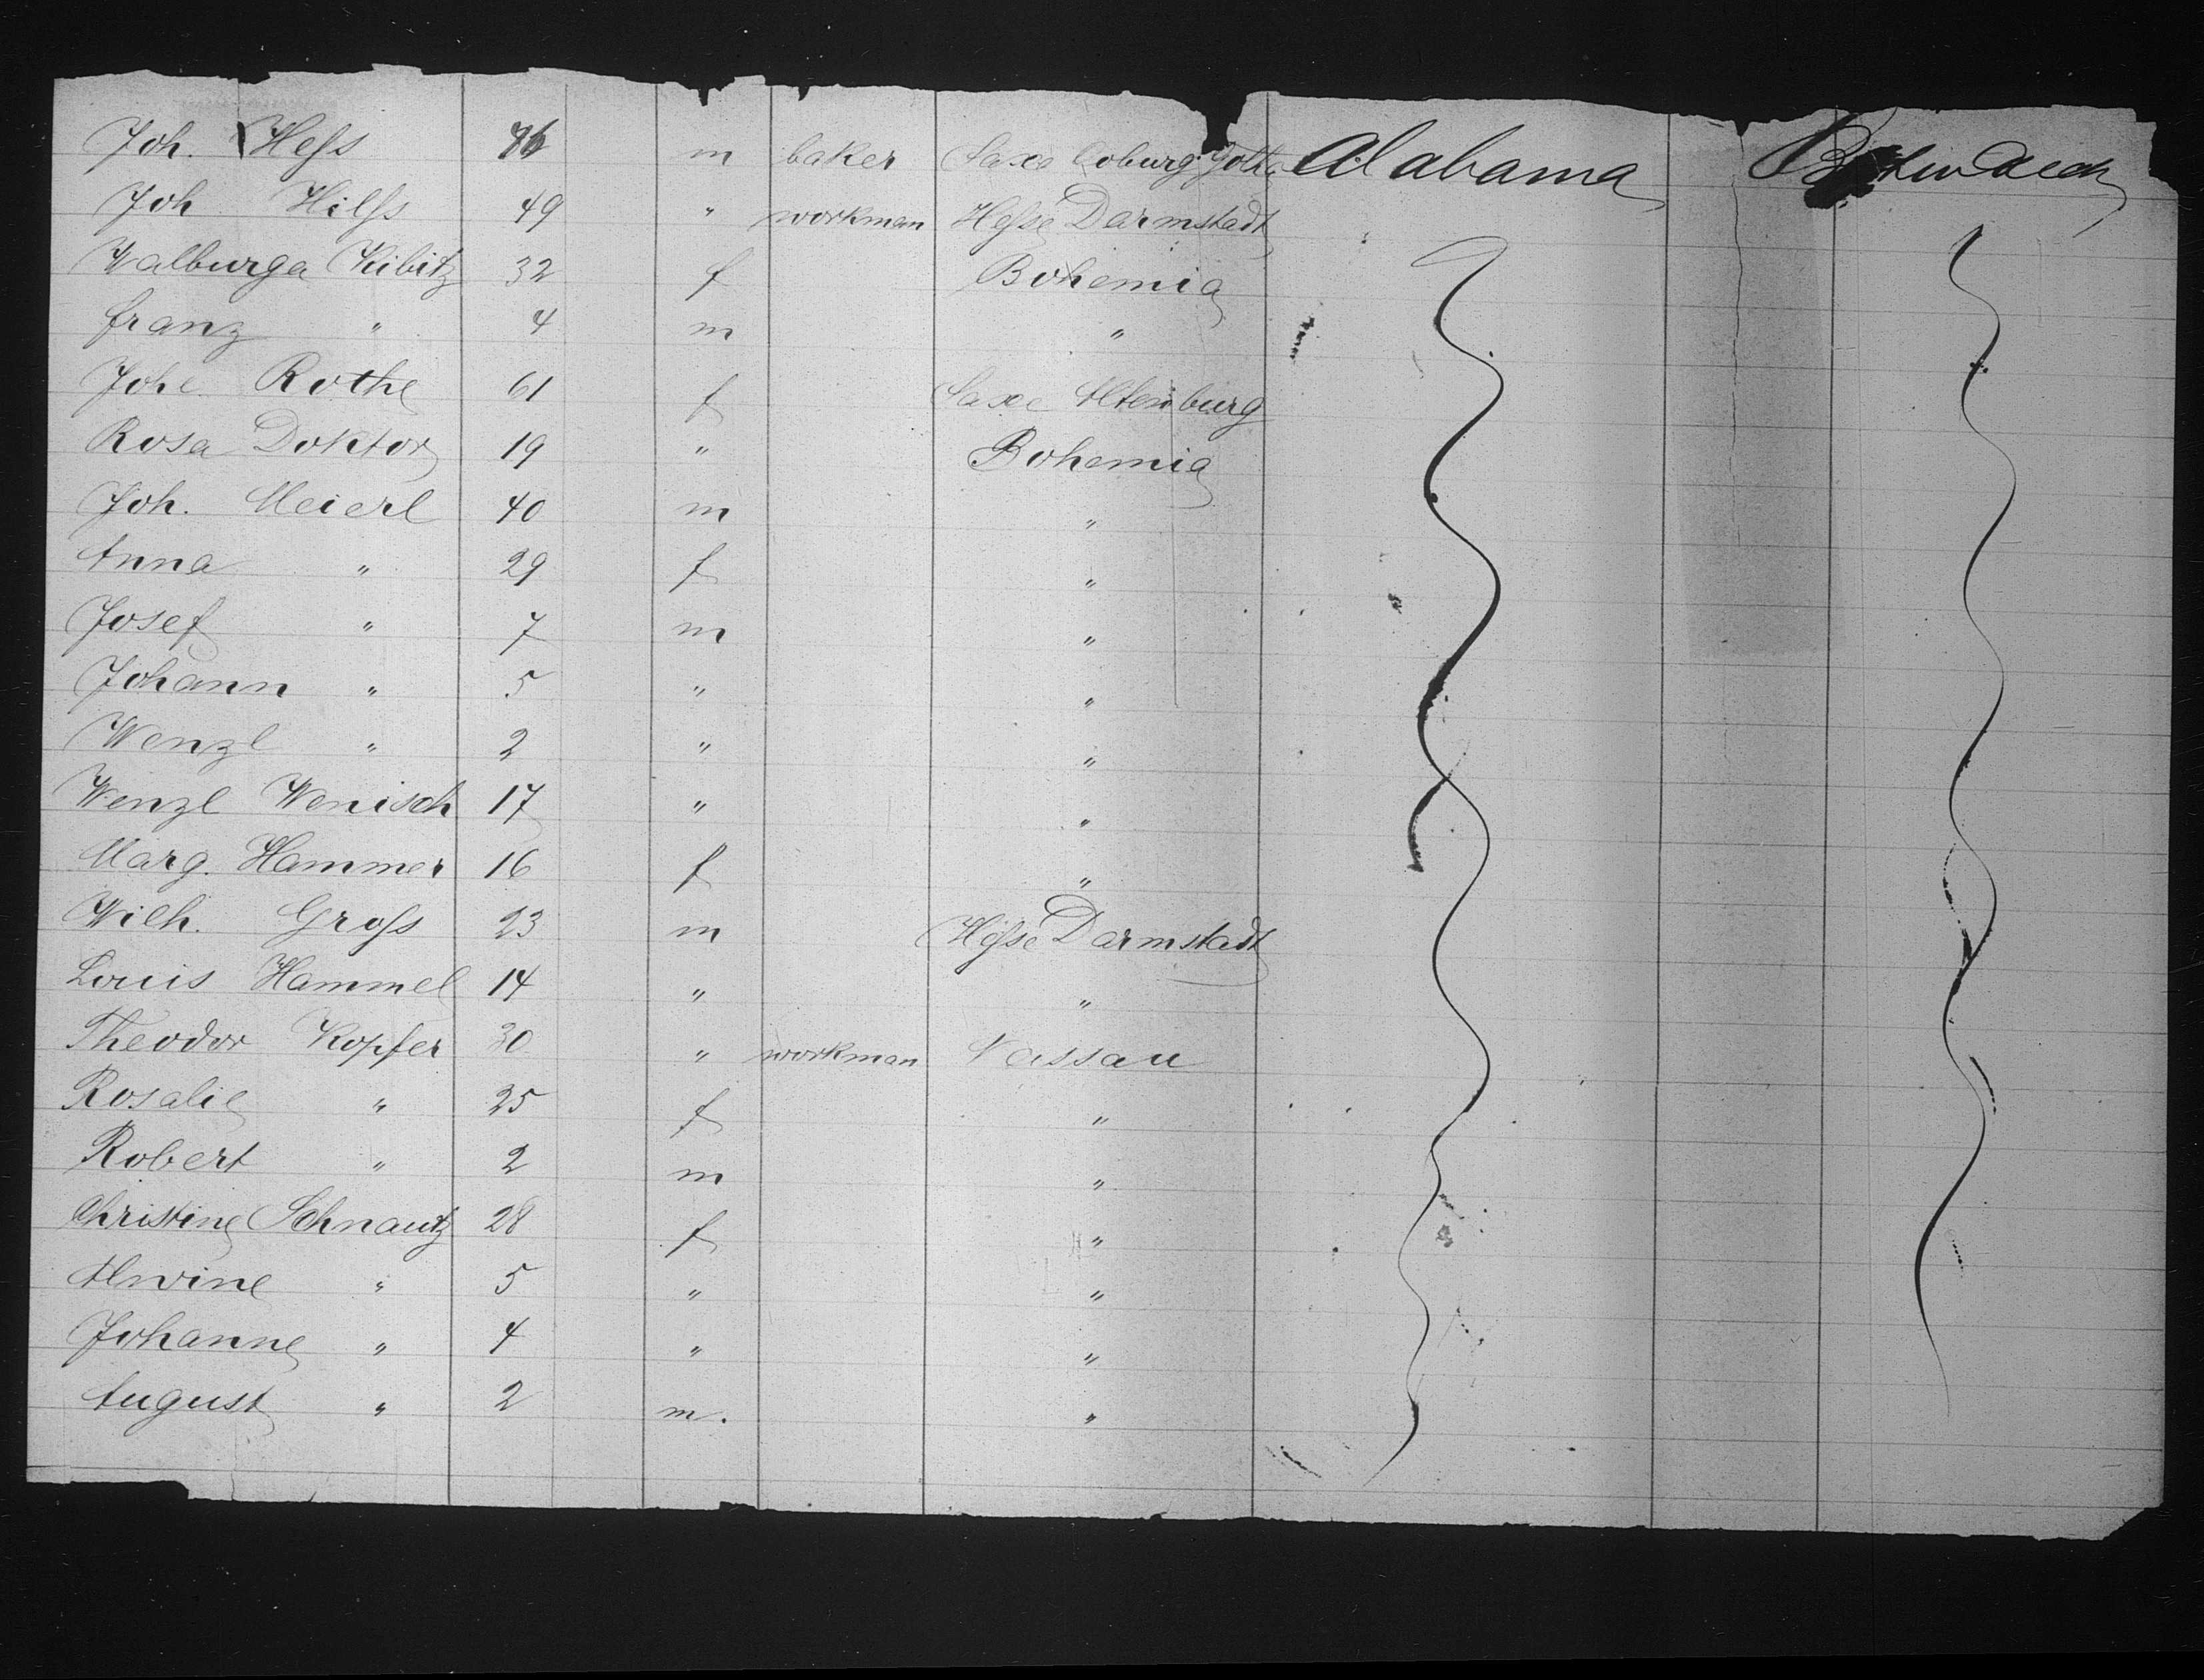 Joh. Heſs 46 m baker Saxe Coburg Gotha Alabama
Joh Hilſs 49 " workman Heſse Darmstadt
Walburga Kibitz 32 f Bohemia
Franz " 4 m "
Johe Rothe 61 f Saxe Altenburg
Rosa Doktor 19 " Bohemia
Joh. Meierl 40 m "
Anna " 29 f "
Josef " 7 m "
Johann " 5 " "
Wenzl " 2 " "
Wenzl Wenisch 17 " "
Marg. Hammer 16 f "
Wilh. Groſs 23 m Heſse Darmstadt
Louis Hammel 14 " "
Theodor Kopfer 30 " workman Nassau
Rosalie " 25 f "
Robert " 2 m "
Christine Schnautz 28 f "
Alwine " 5 " "
Johanne " 4 " "
August " 2 m. "